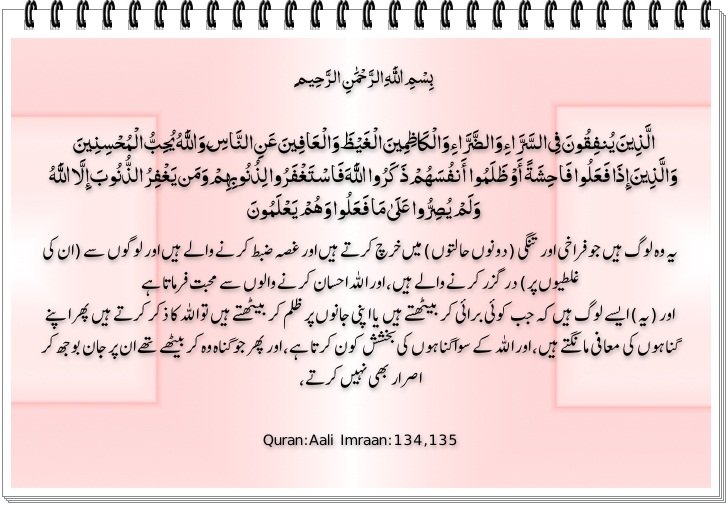 بِسْمِ اللَّهِ الرَّحْمَٰنِ الرَّحِيمِ
الَّذِينَ يُنفِقُونَ فِي السَّرَّاءِ وَالضَّرَّاءِ وَالْكَاظِمِينَ الْغَيْظَ وَالْعَافِينَ عَنِ النَّاسِ وَاللَّهُ يُحِبُّ الْمُحْسِنِينَ
وَالَّذِينَ إِذَا فَعَلُوا فَاحِشَةً أَوْ ظَلَمُوا أَنفُسَهُمْ ذَكَرُوا اللَّهَ فَاسْتَغْفَرُوا لِذُنُوبِهِمْ وَمَن يَغْفِرُ الذُّنُوبَ إِلَّا اللَّهُ
وَلَمْ يُصِرُّوا عَلَىٰ مَا فَعَلُوا وَهُمْ يَعْلَمُونَ
یہ وہ لوگ ہیں جو فراخی اور تنگی (دونوں حالتوں) میں خرچ کرتے ہیں اور غصہ ضبط کرنے والے ہیں اور لوگوں سے (ان کی
غلطیوں پر) در گزر کرنے والے ہیں، اور اللہ احسان کرنے والوں سے محبت فرماتا ہے
اور (یہ) ایسے لوگ ہیں کہ جب کوئی برائی کر بیٹھتے ہیں یا اپنی جانوں پر ظلم کر بیٹھتے ہیں تو اللہ کا ذکر کرتے ہیں پھر اپنے
گناہوں کی معافی مانگتے ہیں، اور اللہ کے سوا گناہوں کی بخشش کون کرتا ہے، اور پھر جو گناہ وہ کر بیٹھے تھے ان پر جان بوجھ کر
اصرار بھی نہیں کرتے،
Quran:Aali Imraan:134,135